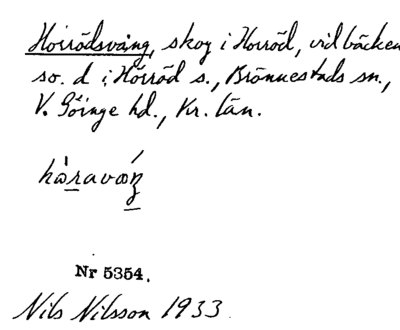 Horrödsvång, skog i Horröd, vid bäcken
so. d i Hörröd s., Brönnestads sn.,
V. Göinge hd., Kr. län.
Nr 5354.
Nils Nilsson 1933.